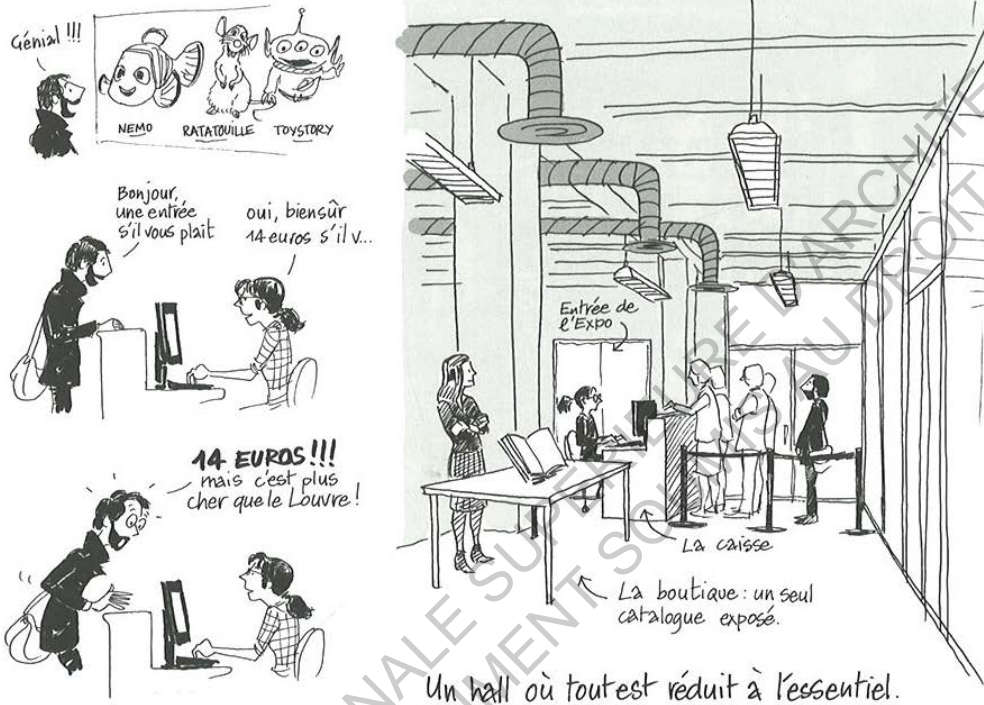 Génial !!!
NEMO RATATOUILLE TOYSTORY
Bonjour,
une entrée
s'il vous plait
oui, biensûr
14 euros s'il v...
14 EUROS!!!
mais c'est plus
cher que le Louvre!
Entrée de
l'Expo
La caisse
La boutique : un seul
catalogue exposé.
Un hall où tout est réduit à l'essentiel.
NALE SUPERIEURE D'ARCHITE
MENT SOUMIS AU DROIT